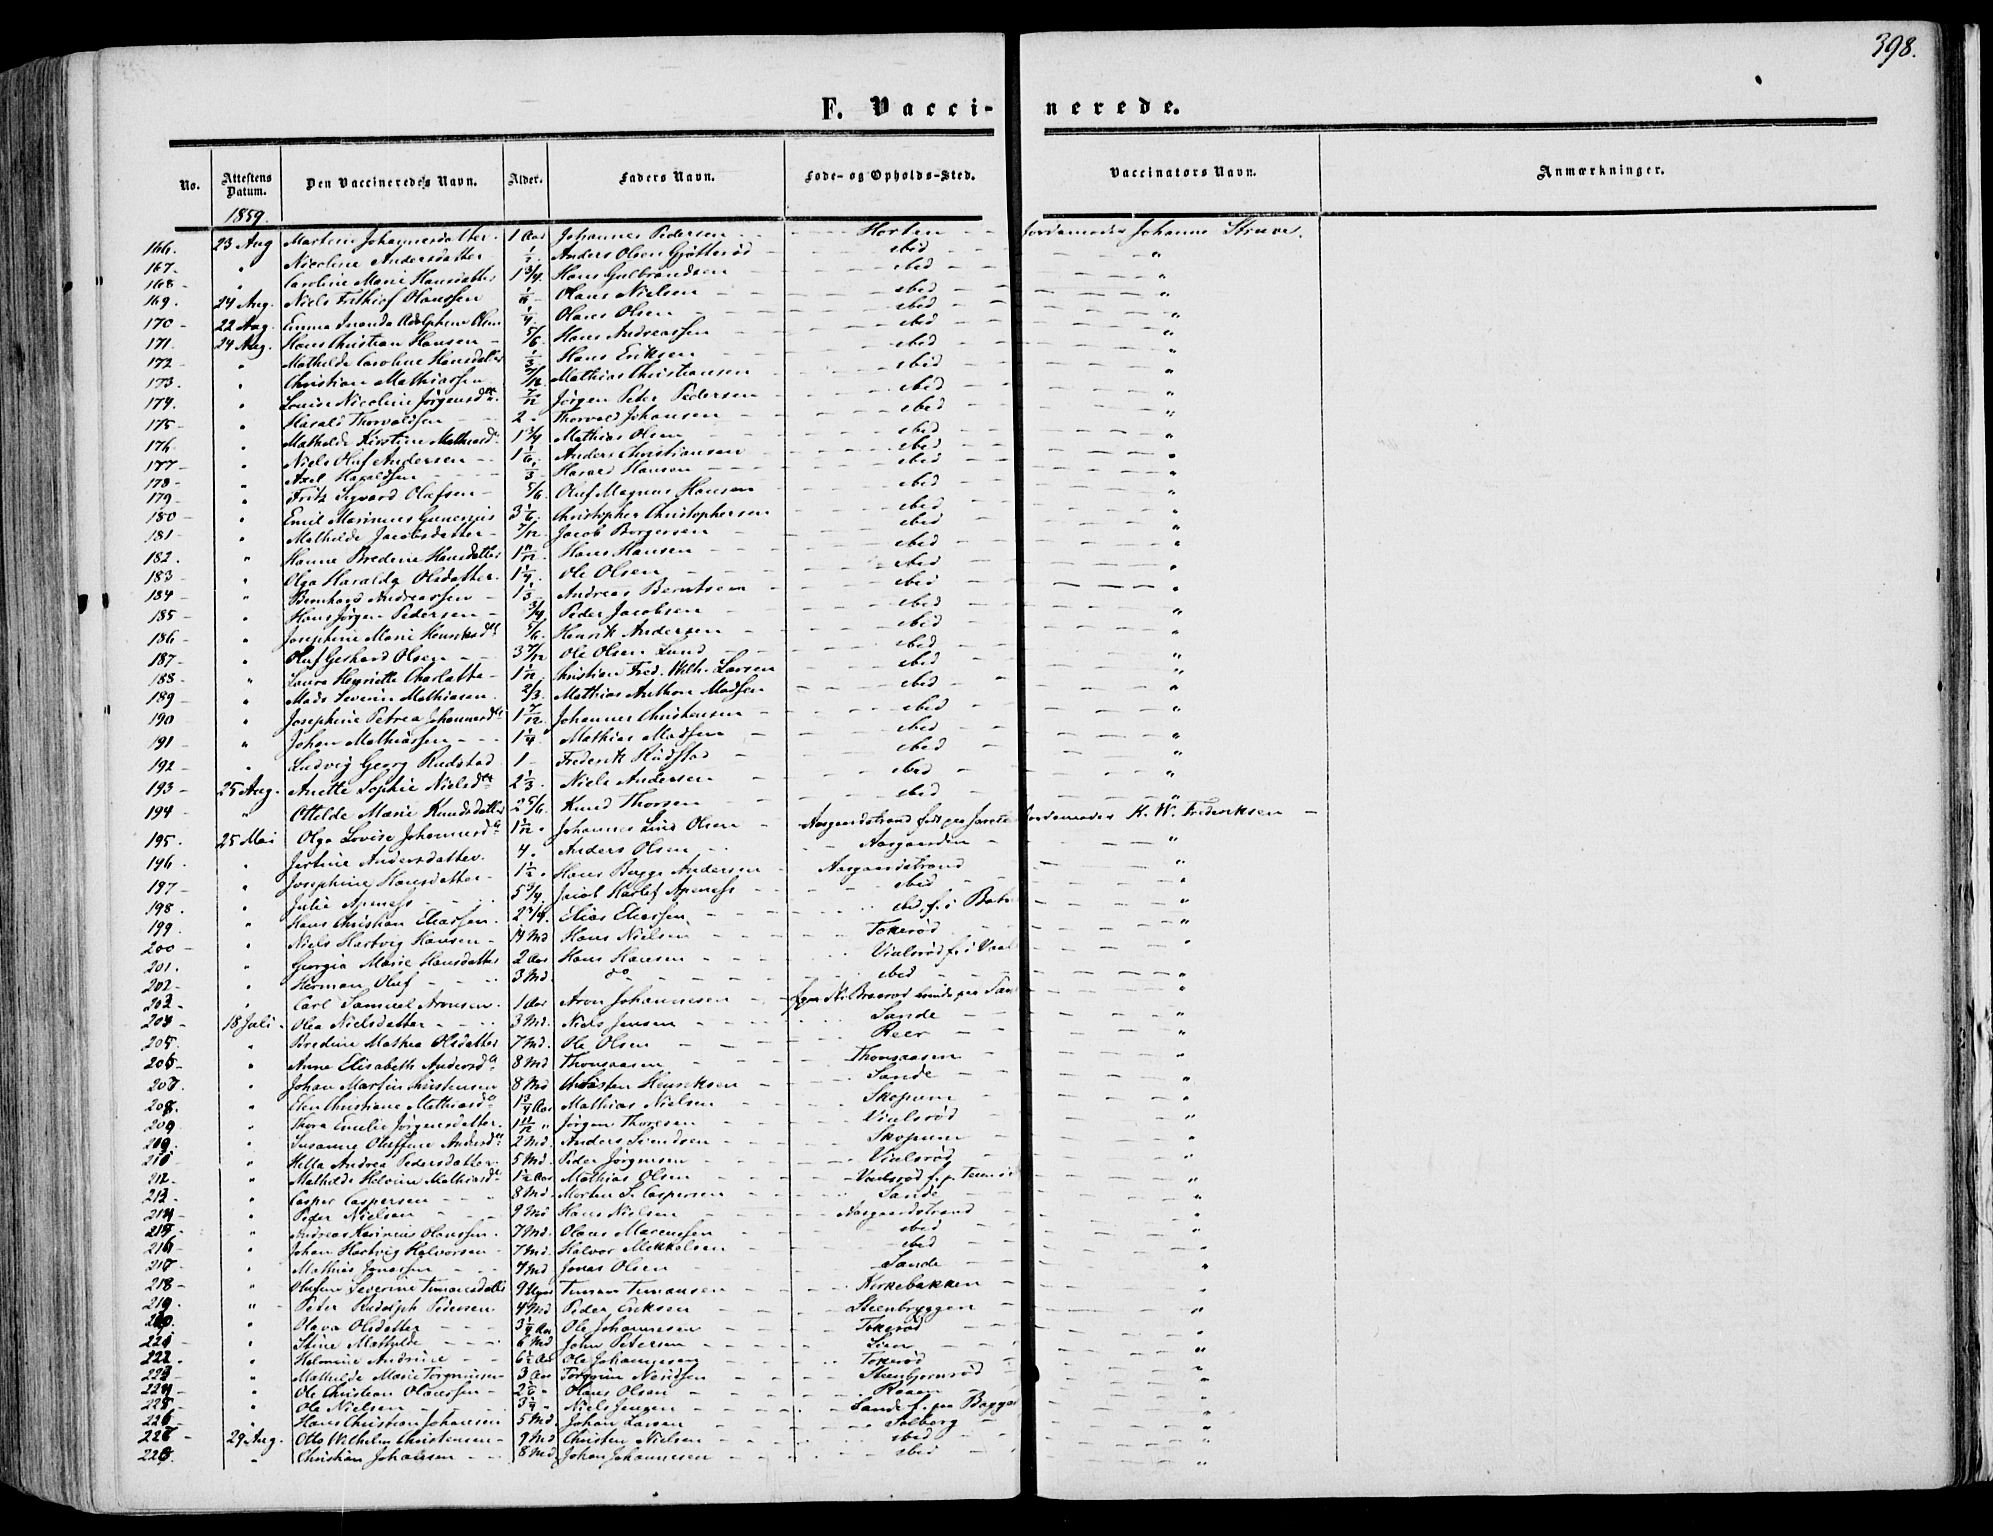 398.
F. Vacci- nerede.
No. Attestens Datum. Den Vaccineredes Navn. Alder. Faders Navn. Føde- og Opholds-Sted. Vaccinators Navn. Anmærkninger.
1859.
166. 23 Aug Martine Johannesdatter. 1 Aar Johannes Pedersen Horten Jordemoder Johanne Struve.
167. " Nicoline Andersdatter Anders Olsen Gjötterød ibid "
168 " Caroline Marie Hansdatter 1 3/4. Hans Gulbrandsen ibid "
169. 24 Aug. Niels Frithiof Olaussen Olaus Nielsen ibid "
170 22 Aug. Emma Amanda Adolphine Olsen 1/4 Olaves Olsen ibid "
171. 24 Aug. Hans Christian Hansen 5/6. Hans Andreassen ibid "
172 " Mathilde Caroline Hansdatter 1/3 Hans Eriksen ibid "
173. " Christian Mathiassen 7/12 Mathias Christiansen ibid "
174. " Louise Nicoline Jørgensdtr 7/12 Jørgen Peter Pedersen ibid "
175 " Harald Thorvaldsen 2 Thorvald Johansen ibid "
176 " Mathilde Kirstine Mathiasd. 1 3/4 Mathias Olsen ibid "
177 " Niels Oluf Andersen 1 1/6. Anders Christiansen ibid "
178 " Axel Haraldsen 1/3 Harald Hansen ibid "
179 " Fritz Sigvard Olafsen 5/6. Oluf Magnus Hansen ibid "
180 " Emil Marinius 3 1/6. Christopher Christophersen ibid "
181 " Mathilde Jacobsdatter 7/12. Jacob Borgersen ibid "
182. " Hanne Bredine Hansdatter 1 11/12. Hans Hansen ibid "
183 " Olga Haralda Olsdatter. 1 1/4. Ole Olsen ibid "
184 " Bernhard Andreassen 1 1/3 Andreas Berntsen ibid "
185 " Hans Jørgen Pedersen 3/4 Peder Jacobsen ibid "
186 " Josephine Marie Henriksdtr 5/6. Henrik Andersen ibid "
187 " Oluf Gerhard Olsen 3 7/12 Ole Olsen Lund ibid "
188 " Laura Henriette Charlotte 1 1/12 Christian Fred. Wilh. Larsen ibid "
189 " Mads Severin Mathiasen. 2/3. Mathias Anthon Madsen ibid "
190 " Josephine Petrea Johannesdtr 1 7/12. Johannes Christensen ibid "
191 " Johan Mathiassen 1 1/4 Mathias Madsen ibid "
192 " Ludvig Georg Rudstad 1 Frederik Rudstad ibid "
193 25 Aug. Anette Sophie Nielsdtr 2 1/3. Niels Andersen ibid "
194 " Otilde Marie Knudsdatter 2 5/6. Knud Thorsen ibid "
195. 25 Mai Olga Lovise Johannesdtr 1 1/12 Johannes Lind Olsen Aasgaardstrand født paa Jordemoder K. W. Frederiksen
196. " Jertine Andersdatter. 4. Anders Olsen Aasgaarden "
197 " Josephine Hansdatter 1 1/2 Hans Bugge Andersen Aasgaardstrand "
198. " Julie Apeness 5 3/4. Jacob Apeness ibid "
199. " Hans Christian Eliassen. 2 3/4. Elias Eliassen ibid. f. i "
200 " Niels Hartvig Hansen 14 Md Hans Nielsen Tokerød "
201. " Georgia Marie Hansdatter 2 Aar Hans Hansen Vialsrød f. i "
202 " Herman Oluf 3 Md. do ibid "
203 " Carl Samuel Aronsen. 1 Aar Aron Johannesen "
204 18 Juli. Olea Nielsdatter 3 Md. Niels Jensen Sande "
205. " Bredine Mathea Olsdatter 7 Md. Ole Olsen Reer "
206 " Anne Elisabeth Andersd. 8 Md Thorsaasen "
207. " Johan Martin Christensen 8 Md Christen Henriksen Sande "
208. " Elen Christiane Mathiasd. 1 3/4 Aar Mathias Nielsen Skopum "
209 " Thora Emilie Jørgensdatter. 1 11/12 " Jørgen Thoresen Vialsrød "
210. " Susanne Oluffine Andersdtr 2 Md. Anders Svendsen Skopum "
211 " Hella Andrea Pedersdatter. 5 Md. Peder Jørgensen Vialsrød "
212 " Mathilde Helvine Mathiasdtr 1 1/2 Aar Mathias Olsen Vialsrød f. p. "
213. " Casper Caspersen 8 Md. Morten S. Caspersen Sande "
214 " Peder Nielsen 9 Md Hans Nielsen Aasgaardstrand "
215 " Andreas Olaussen. 7 Md. Olaus Marcussen ibid "
216 " Johan Hartvig Halvorsen 7 Md. Halvor Mikkelsen ibid "
217 " Mathias Jonassen 4 Md Jonas Olsen Sande "
218 " Olufine Severine Timansdatter 9 Timan Timansen Kirkebakken "
219. " Peter Rudolph Pedersen. 4 Md Peder Eriksen Steenbryggen "
220. " Olava Olsdatter 3 1/4 Aar Ole Johannesen Tokerød "
221 " Stine Mathilde 6 Md John Petersen "
222. " Helmine Andrine 6 1/2 Aar Ole Johannesen Tokerød "
223 " Mathilde Marie Torgrimsen 3 Aar Torgrim Steenbjørnrød "
224 " Ole Christian Olaussen 2 1/6 " Olaus Olsen Raaen "
225. " Ole Nielsen 3 1/4 " Niels Jensen Sande f. paa "
226 " Hans Christian Johansen 5 Md. Johan Larsen Solberg "
227 29 Aug. Otto Wilhelm Christensen 9 Md Christen Nielsen ibid "
228. " Christian Johansen 8 Md. Johan Johannesen ibid "